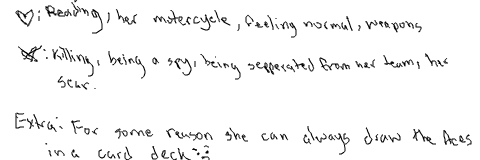 ♡: Reading, her motercycle, feeling normal, weapons
: Killing, being a spy, being sepperated from her team, her
scar.
Extra: For some reason she can always draw the Aces
in a card deck